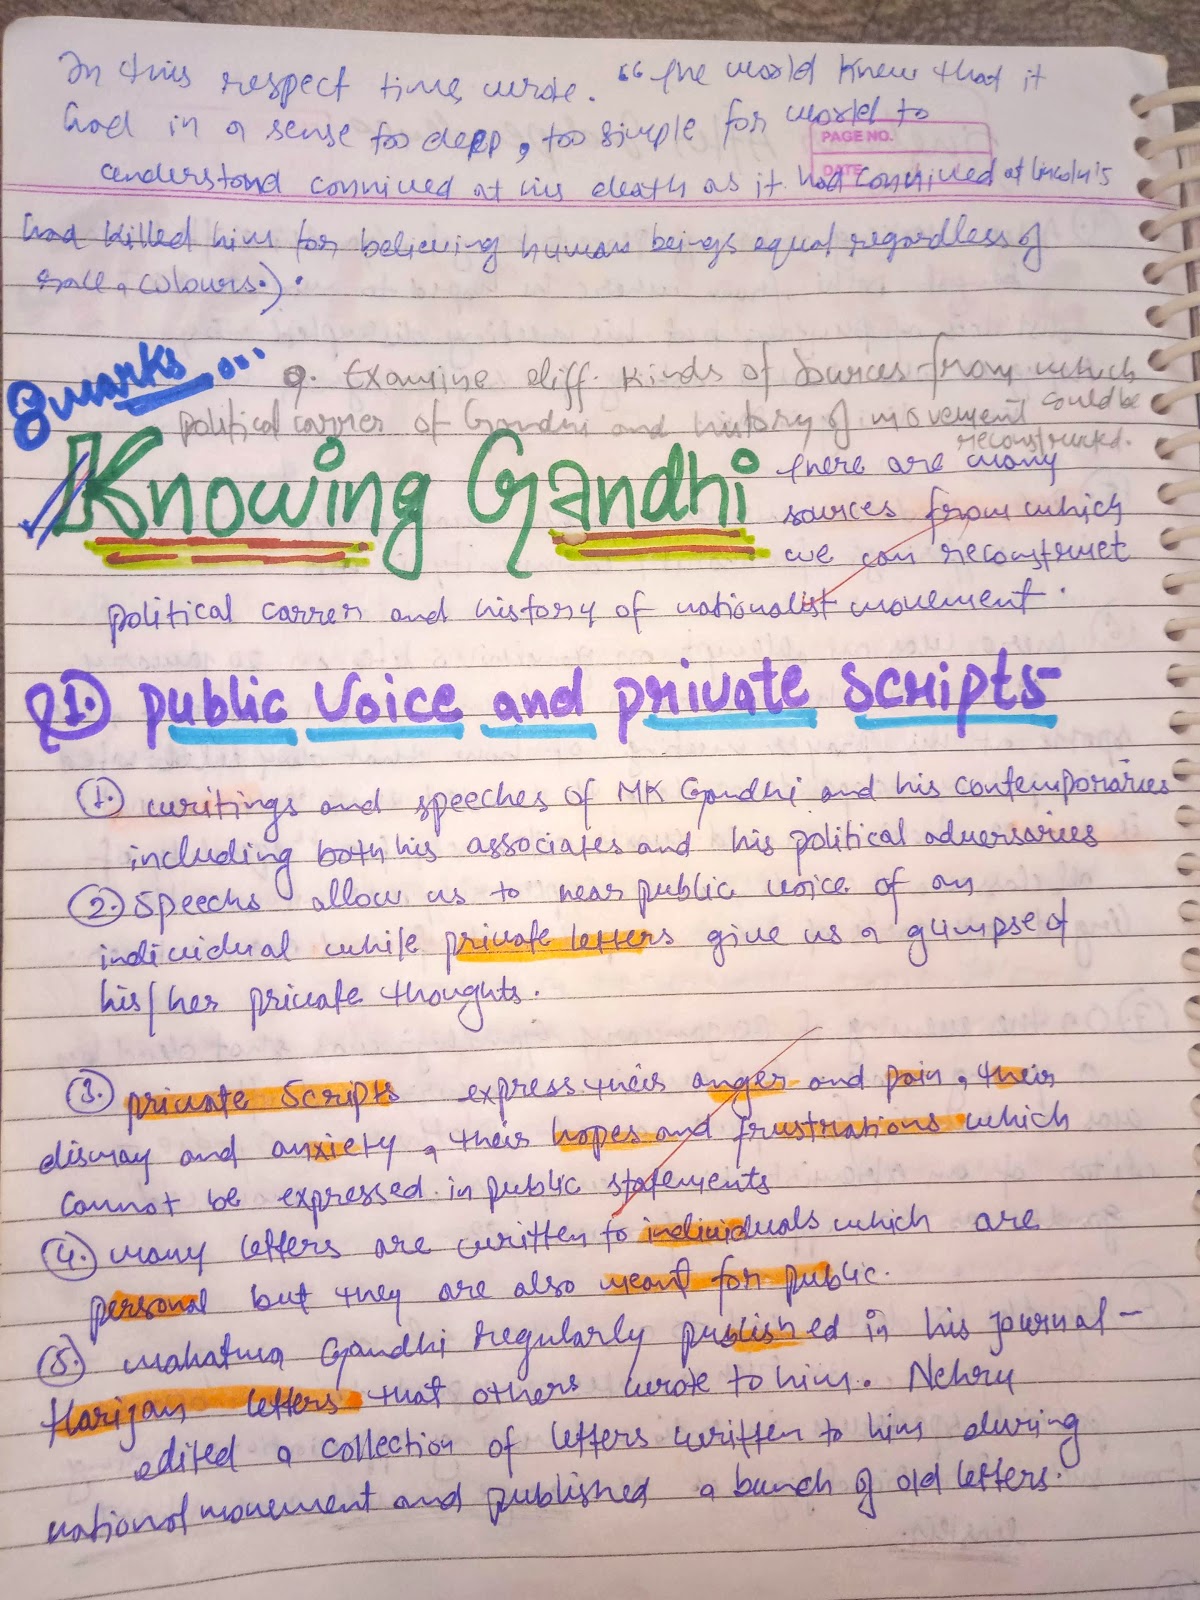 In this respect time, wrote. "The world knew that it
had in a sense too deep, too simple for world to
PAGE NO.
DATE
understand connived at his death as it had connived at lincoln's
had killed him for believing human beings equal regardless of
race, colours.).
8 marks...
Q. Examine diff. kinds of sources from which
political carrer of Gandhi and history of movement could be
reconstructed.
Knowing Gandhi
there are many
sources from which
we can reconstruct
political carrer and history of nationalist movement.
1. public Voice and private Scripts-
1. writings and speeches of MK Gandhi and his contemporaries
including both his associates and his political adversaries
2. Speechs allow us to hear public voice of an
individual while private letters give us a glimpse of
his/her private thoughts.
3. private Scripts express their anger and pain, their
dismay and anxiety, their hopes and frustrations which
cannot be expressed in public statements
4. many letters are written to individuals which are
personal but they are also meant for public.
5. mahatma Gandhi regularly published in his journal -
Harijan letters that others wrote to him. Nehru
edited a collection of letters written to him during
national movement and published a bunch of old letters.